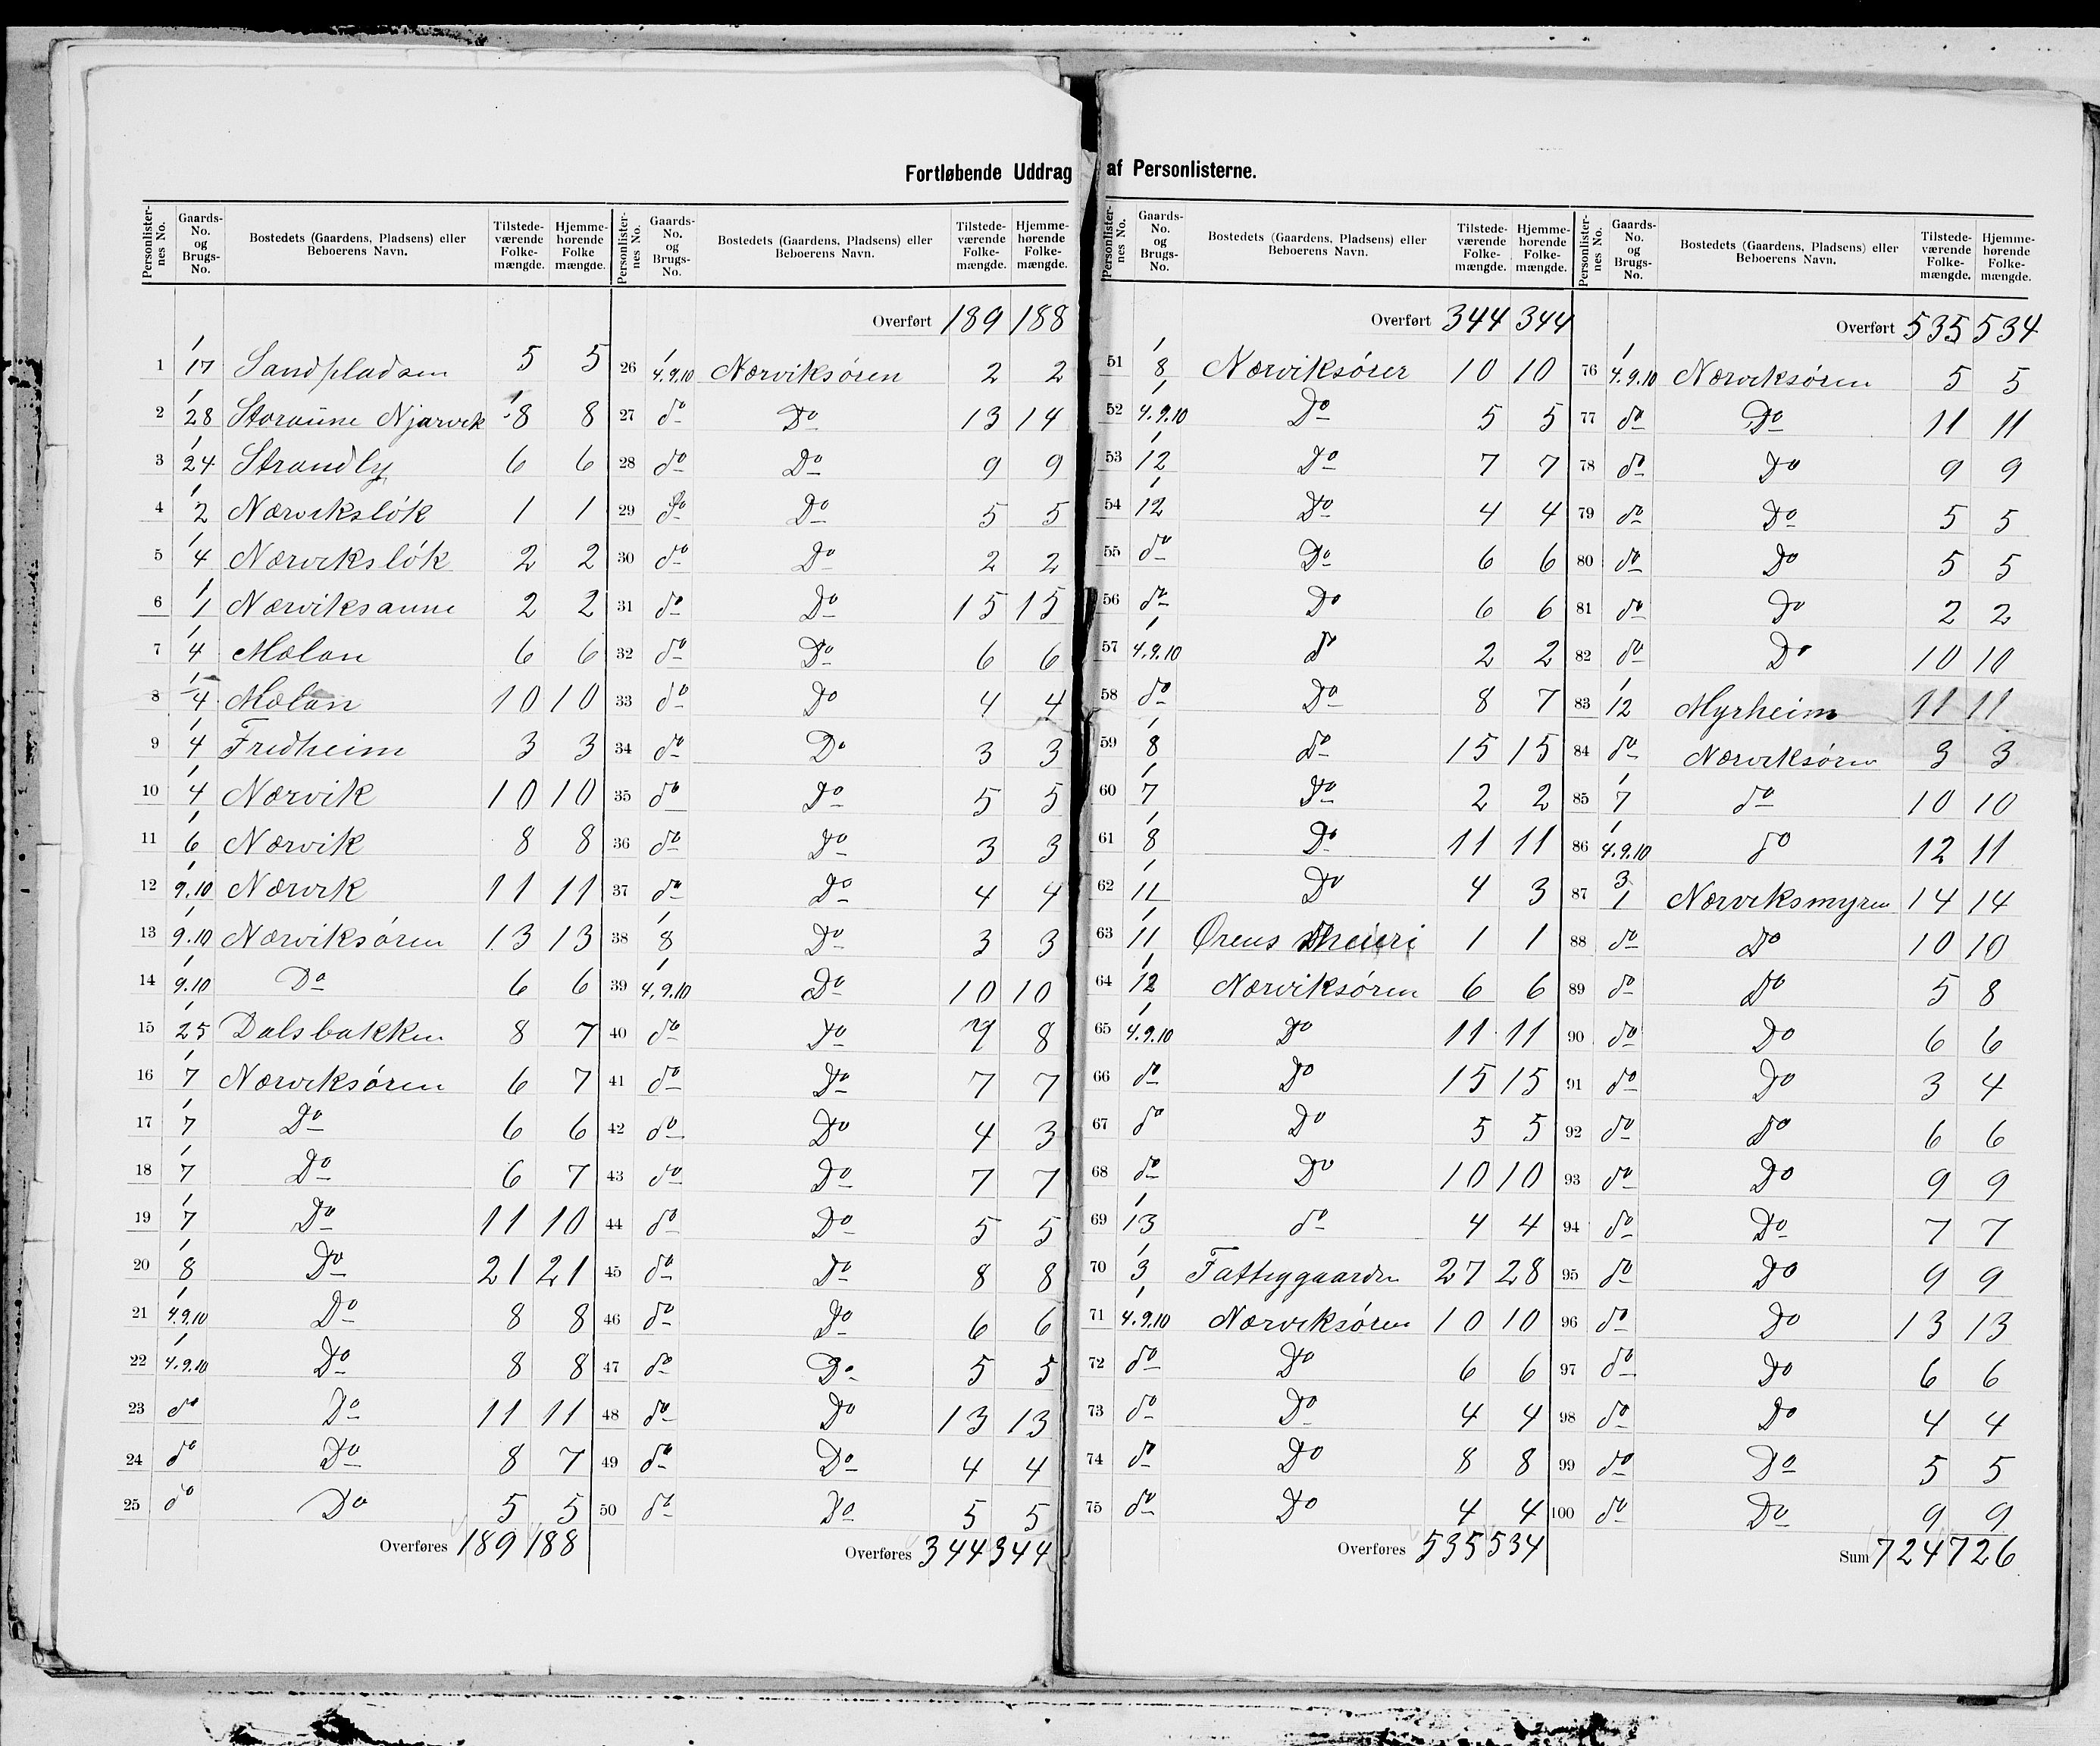 Fortløbende Uddrag af Personlisterne.
Personlister-nes No. | Gaards-No. og Brugs-No. | Bostedets (Gaardens, Pladsens) eller Beboerens Navn. | Tilstede-værende Folke-mængde. | Hjemme-hørende Folke mængde.
1 | 1/17 | Sandpladsen | 5 | 5
2 | 1/28 | Storaune Njarvik | 8 | 8
3 | 1/24 | Strandly | 6 | 6
4 | 1/2 | Nærvikslök | 1 | 1
5 | 1/4 | Nærvikslök | 2 | 2
6 | 1/1 | Nærviksaune | 2 | 2
7 | 1/4 | Mælan | 6 | 6
8 | 1/4 | Mælan | 10 | 10
9 | 1/4 | Fredheim | 3 | 3
10 | 1/4 | Nærvik | 10 | 10
11 | 1/6 | Nærvik | 8 | 8
12 | 1/9.10 | Nærvik | 11 | 11
13 | 1/9.10 | Nærviksøren | 13 | 13
14 | 1/9.10 | Do | 6 | 6
15 | 1/25 | Dalsbakken | 8 | 7
16 | 1/7 | Nærviksøren | 6 | 7
17 | 1/7 | Do | 6 | 6
18 | 1/7 | Do | 6 | 7
19 | 1/7 | Do | 11 | 10
20 | 1/8 | Do | 21 | 21
21 | 1/4.9.10 | Do | 8 | 8
22 | 1/4.9.10 | Do | 8 | 8
23 | do | Do | 11 | 11
24 | do | Do | 8 | 7
25 | do | Do | 5 | 5
Overføres 189 188
Personlister-nes No. | Gaards-No. og Brugs-No. | Bostedets (Gaardens, Pladsens) eller Beboerens Navn. | Tilstede-værende Folke-mængde. | Hjemme-hørende Folke-mængde.
Overført 189 188
26 | 1/4.9.10 | Nærviksøren | 2 | 2
27 | do | Do | 13 | 14
28 | do | Do | 9 | 9
29 | do | Do | 5 | 5
30 | do | Do | 2 | 2
31 | do | Do | 15 | 15
32 | do | Do | 6 | 6
33 | do | Do | 4 | 4
34 | do | Do | 3 | 3
35 | do | Do | 5 | 5
36 | do | Do | 3 | 3
37 | do | Do | 4 | 4
38 | 1/8 | Do | 3 | 3
39 | 1/4.9.10 | Do | 10 | 10
40 | do | Do | 7 | 8
41 | do | Do | 7 | 7
42 | do | Do | 4 | 3
43 | do | Do | 7 | 7
44 | do | Do | 5 | 5
45 | do | Do | 8 | 8
46 | do | Do | 6 | 6
47 | do | Do | 5 | 5
48 | do | Do | 13 | 13
49 | do | Do | 4 | 4
50 | do | Do | 5 | 5
Overføres 344 344
Personlister-nes No. | Gaards-No. og Brugs-No. | Bostedets (Gaardens, Pladsens) eller Beboerens Navn. | Tilstede-værende Folke-mængde. | Hjemme-hørende Folke-mængde.
Overført 344 344
51 | 1/8 | Nærviksører | 10 | 10
52 | 1/4.9.10 | Do | 5 | 5
53 | 1/12 | Do | 7 | 7
54 | 1/12 | Do | 4 | 4
55 | do | Do | 6 | 6
56 | do | Do | 6 | 6
57 | 1/4.9.10 | do | 2 | 2
58 | do | Do | 8 | 7
59 | 1/8 | do | 15 | 15
60 | 1/7 | Do | 2 | 2
61 | 1/8 | Do | 11 | 11
62 | 1/11 | Do | 4 | 3
63 | 1/11 | Ørens | 1 | 1
64 | 1/12 | Nærviksøren | 6 | 6
65 | 1/4.9.10 | Do | 11 | 11
66 | do | Do | 15 | 15
67 | do | Do | 5 | 5
68 | do | Do | 10 | 10
69 | 1/13 | do | 4 | 4
70 | 1/3 | Fattiggaarden | 27 | 28
71 | 1/4.9.10 | Nærviksøren | 10 | 10
72 | do | Do | 6 | 6
73 | do | Do | 4 | 4
74 | do | Do | 8 | 8
75 | do | Do | 4 | 4
Overføres 535 534
Personlister-nes No. | Gaards-No. og Brugs-No. | Bostedets (Gaardens, Pladsens) eller Beboerens Navn. | Tilstede-værende Folke-mængde. | Hjemme-hørende Folke-mængde.
Overført 535 534
76 | 1/4.9.10 | Nærviksøren | 5 | 5
77 | do | Do | 11 | 11
78 | do | Do | 9 | 9
79 | do | Do | 5 | 5
80 | do | Do | 5 | 5
81 | do | Do | 2 | 2
82 | do | Do | 10 | 10
83 | 1/12 | Myrheim | 11 | 11
84 | do | Nærviksøren | 3 | 3
85 | 1/7 | do | 10 | 10
86 | 1/4.9.10 | do | 12 | 11
87 | 3/1 | Nærviksmyren | 14 | 14
88 | do | Do | 10 | 10
89 | do | Do | 5 | 8
90 | do | Do | 6 | 6
91 | do | Do | 3 | 4
92 | do | Do | 6 | 6
93 | do | Do | 9 | 9
94 | do | Do | 7 | 7
95 | do | Do | 9 | 9
96 | do | Do | 13 | 13
97 | do | Do | 6 | 6
98 | do | Do | 4 | 4
99 | do | Do | 5 | 5
100 | do | Do | 9 | 9
Sum 724 726